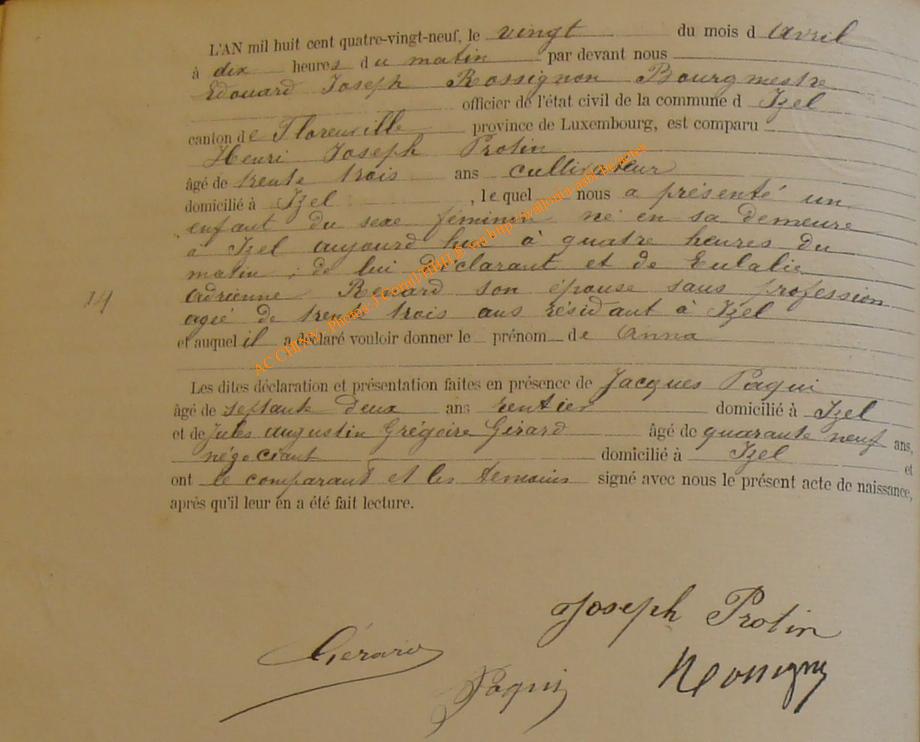 L'AN mil huit cent quatre-vingt-neuf, le vingt du mois d avril
à dix heures du matin par devant nous
Edouard Joseph Rossignon Bourgmestre
officier de l'état civil de la commune d Izel
canton de Florenville province de Luxembourg, est comparu
Henri Joseph Protin
âgé de trente trois ans cultivateur
domicilié à Izel , lequel nous a présenté un
enfant du sexe féminin né en sa demeure
à Izel aujourd hui à quatre heures du
matin ; de lui déclarant et de Eulalie
14
Adrienne Renard son épouse sans profession
agié de trente trois ans résidant à Izel
et auquel il a déclaré vouloir donner le prénom de Anna
Les dites déclaration et présentation faites en présence de Jacques Paqui
âgé de septante deux ans rentier domicilié à Izel
et de Jules Augustin Grégoire Gérard âgé de quarante neuf ans,
négociant domicilié à Izel et
ont le comparant et les témoins signé avec nous le présent acte de naissance,
après qu'il leur en a été fait lecture.
Joseph Protin
Gérard
Paqui
AC CHINY, Photos